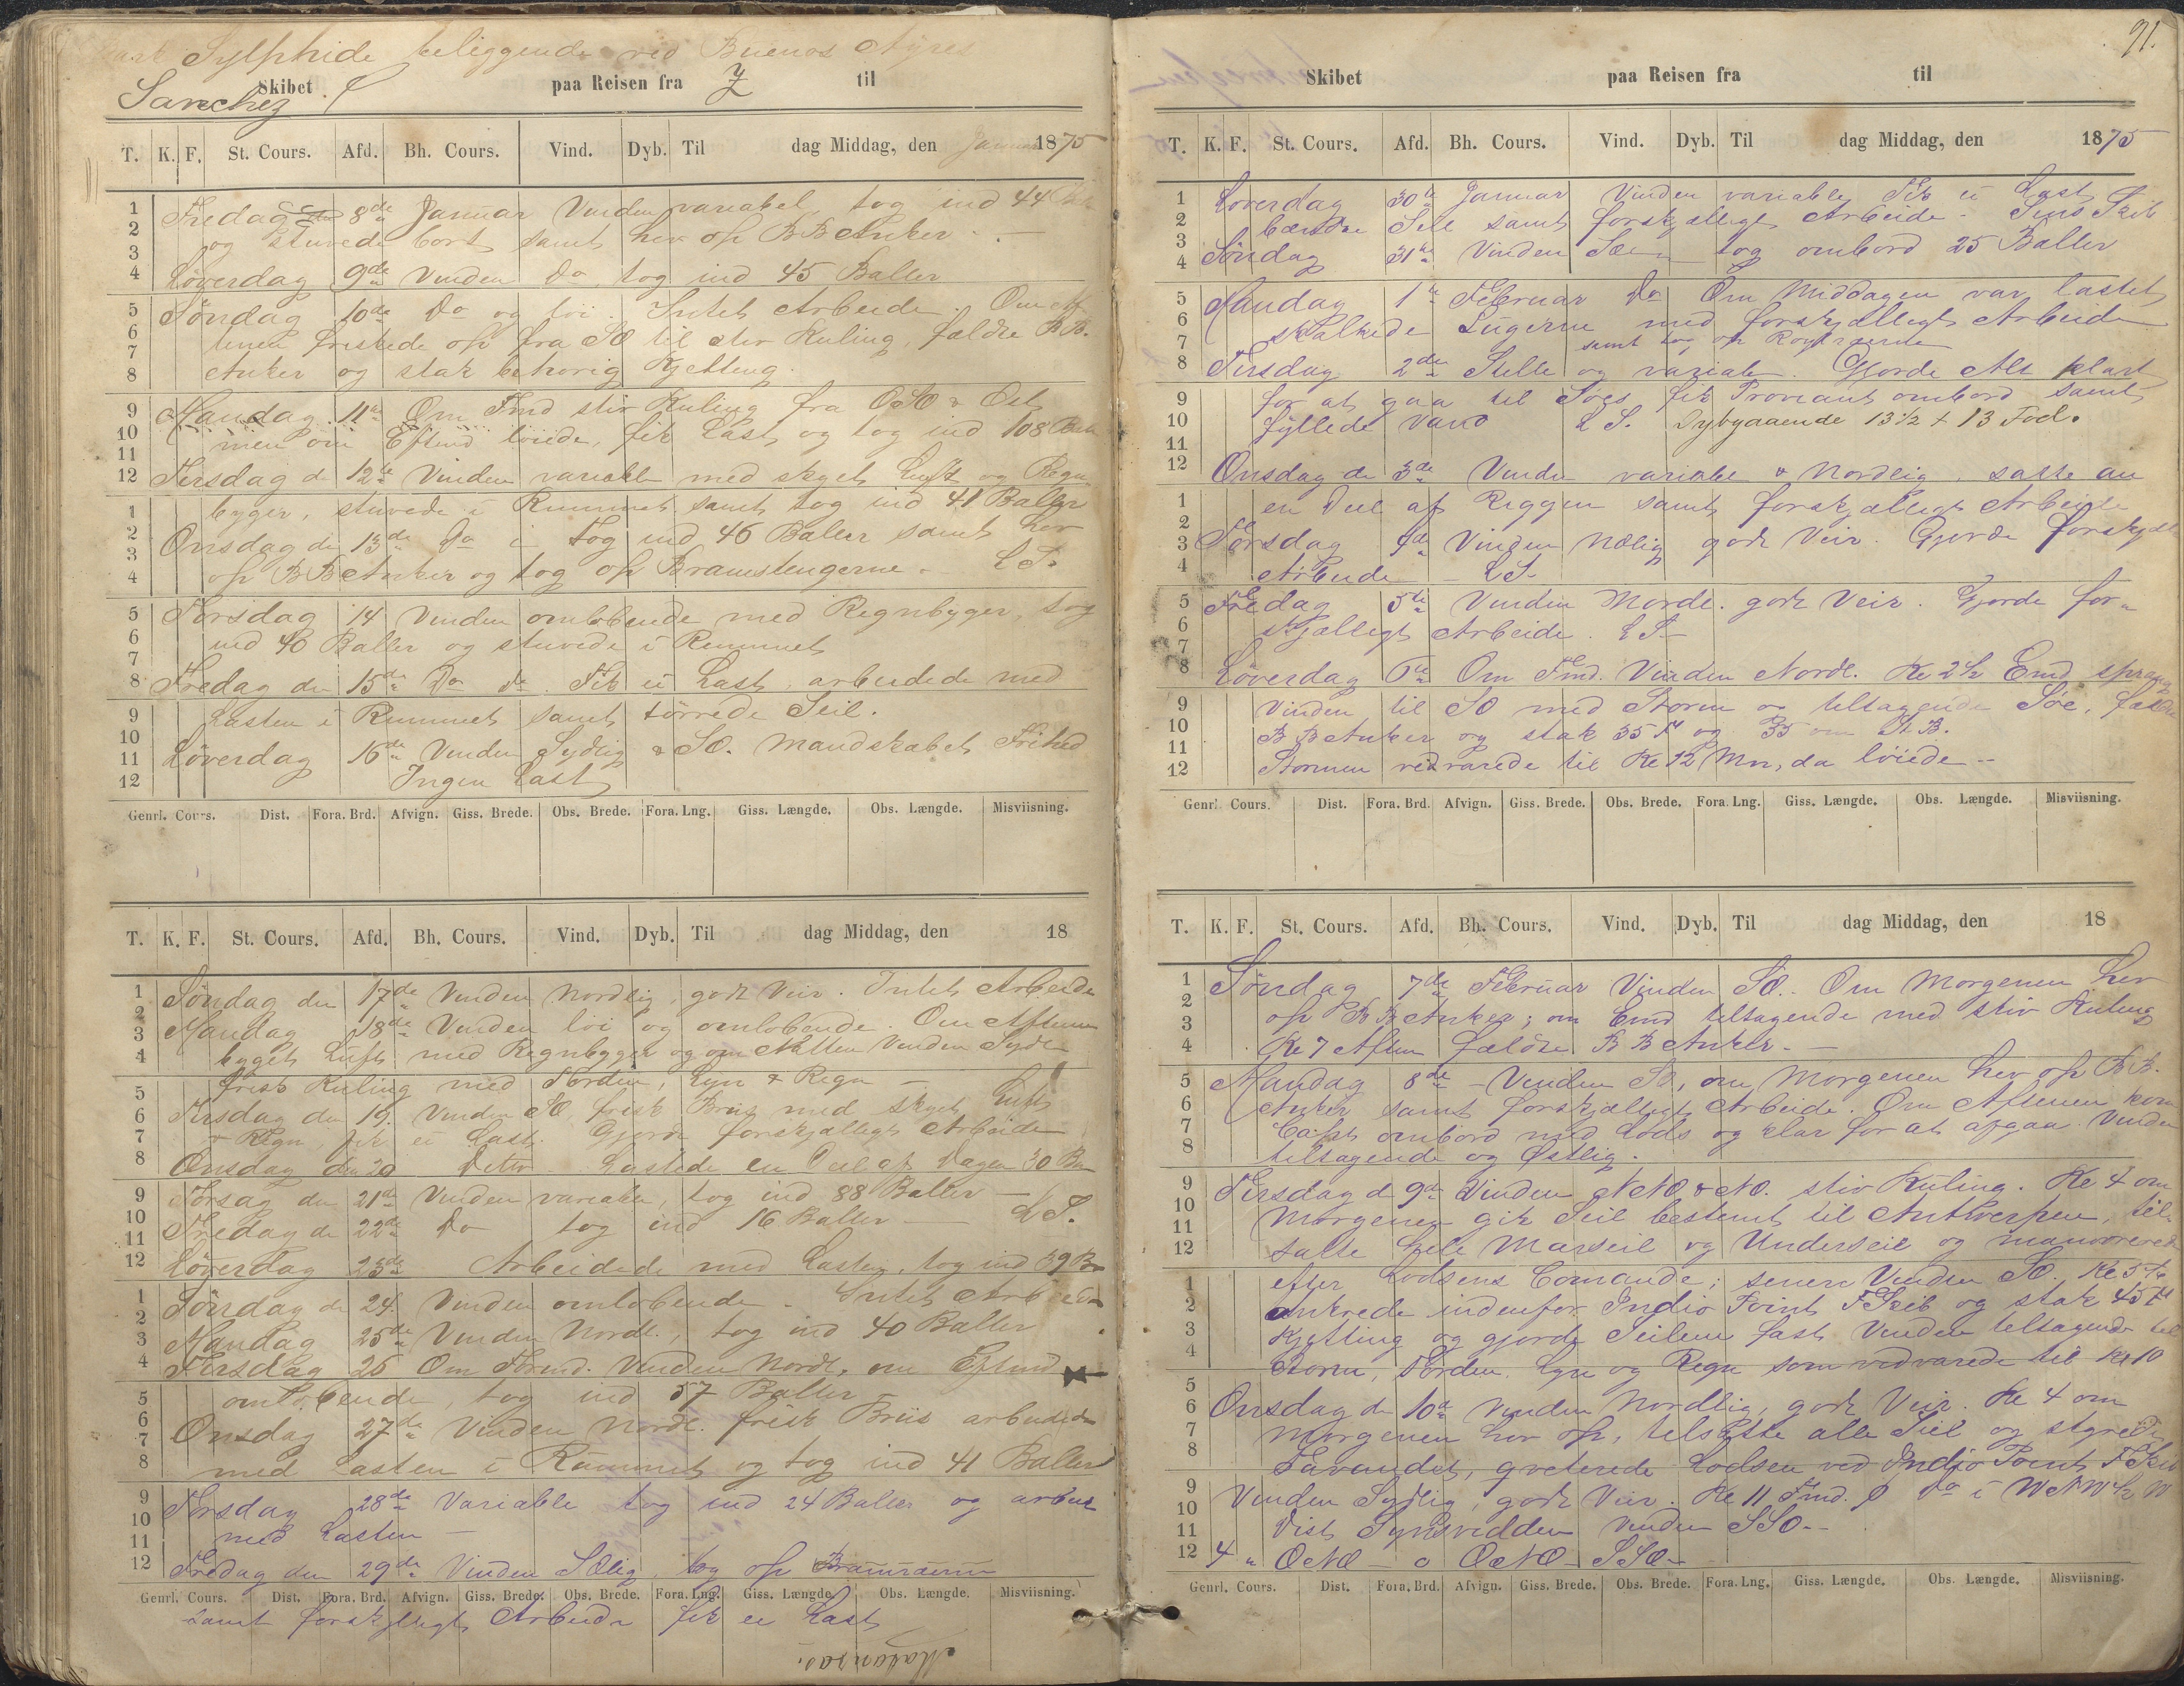 Sylphide beliggende ved Buenos Ayres
Skibet paa Reisen fra til
Sanchez
T. K. F. St. Cours. Afd. Bh. Cours. Vind. Dyb. Til dag Middag, den Januar 1875
1 Fredag 8de Januar Vinden variabel tog ind 44
2 og stuvede bort samt hev op BB Anker. —
3
4 Löverdag 9de Vinden Do tog ind 45 Baller
5 Söndag 10de Do og löi. Intet Arbeide. Om Af
6 tenen friskede op fra SO til stiv Kuling, fældte BB.
7 Anker og stak behörig Kjetting.
8
9 Mandag 11te Om Fmd stiv Kuling fra OSO & Ost
10 men om Eftmd löiede, fik Last og tog ind 108
11
12 Tirsdag d 12te Vinden variable med skyet Luft og Regn
1 byger, stuvede i Rummet samt tog ind 41 Baller
2 Onsdag d 13de Do tog ind 46 Baller samt hev
3 op BB Anker og tog op Bramstengerne — LS.
4
5 Torsdag 14 Vinden omlöbende med Regnbyger, tog
6 ind 40 Baller og stuvede i Rummet
7
8 Fredag den 15de Do do. Fik ei Last, arbeidede med
9 Lasten i Rummet samt törrede Seil.
10
11 Löverdag 16de Vinden Sydlig & SO. Mandskabet Frihed
12 Ingen Last
Genrl. Cours. Dist. Fora. Brd. Afvign. Giss. Brede. Obs. Brede. Fora. Lng. Giss. Længde. Obs. Længde. Misviisning.
T. K. F. St. Cours. Afd. Bh. Cours. Vind. Dyb. Til dag Middag, den 18
1 Söndag den 17de Vinden Nordlig, godt Veir. Intet Arbeide
2 Mandag 18de Vinden löi og omlöbende. Om Aftenen
3 byget Luft med Regnbyger og om Natten Vinden Sydl
4
5 frisk Kuling med Torden, Lyn & Regn —
6 Tirsdag den 19. Vinden SO frisk Briis med skyet Luft
7 & Regn, fik ei Last. Gjorde forskjælligt Arbeide
8 Onsdag den 20 Detto. Lastede en Deel af Dagen 30 Ba
9 Torsag den 21de Vinden variabel, tog ind 88 Baller —
10 Fredag d 22de Do tog ind 16 Baller — LS.
11
12 Löverdag 23de Arbeidede med Lasten, tog ind 39 Ba
1 Söndag d 24. Vinden omlöbende. Intet Arbeide
2
3 Mandag 25de Vinden Nordl., tog ind 40 Baller
4 Tirsdag 26 Om Formd. Vinden Nordl, om Eftmd
5 omlöbende, tog ind 57 Baller
6 Onsdag 27de Vinden Nordl. frisk Briis arbeidede
7
8 med Lasten i Rummet og tog ind 41 Baller
9 Torsdag 28de Variable tog ind 24 Baller og arbeid
10 med Lasten —
11
12 Fredag den 29de Vinden SOlig, tog op Bramraaerne
Genrl. Cours. Dist. Fora. Brd. Afvign. Giss. Brede. Obs. Brede. Fora. Lng. Giss. Længde. Obs. Længde. Misviisning.
samt forskjelligt Arbeide fik ei Last
Matanzas.
91.
Skibet paa Reisen fra til
T. K. F. St. Cours. Afd. Bh. Cours. Vind. Dyb. Til dag Middag, den 1875
1 Löverdag 30te Januar Vinden variable Fik ei Last
2 Seil samt forskjælligt Arbeide.
3
4 Söndag 31te Vinden tog ombord 25 Baller
5 Mandag 1te Februar Do Om Middagen var lastet
6 skalkede Lugerne med forskjælligt Arbeide
7 samt tog op Röylraaerne
8 Tirsdag 2den Stille og variabel. Gjorde Alt klart
9 for at gaa til Söes fik Proviant ombord samt
10 fyllede Vand LS. Dybgaaende 13 1/2 + 13 Fod.
11
12 Onsdag de 3de Vinden variabel & Nordlig, satte an
1 en Deel af Riggen samt forskjælligt Arbeide
2
3 Torsdag 4de Vinden Ndlig godt Veir. Gjorde forskjell
4 Arbeide — LS.
5 Fredag 5te Vinden Nordl. godt Veir. Gjorde for-
6 skjælligt Arbeide. LS —
7
8 Löverdag 6te Om Fmd. Vinden Nordl. Kl 2 1/2 Emd sprang
9 Vinden til SO med Storm og tiltagende Söe, fældte
10 BB Anker og stak 35 F og 35 om St.B.
11
12 Stormen vedvarede til Kl 12 Mn, da löiede —
Genrl. Cours. Dist. Fora. Brd. Afvign. Giss. Brede. Obs. Brede. Fora. Lng. Giss. Længde. Obs. Længde. Misviisning.
T. K. F. St. Cours. Afd. Bh. Cours. Vind. Dyb. Til dag Middag, den 18
1 Söndag 7de Februar Vinden SO. Om Morgenen hev
2 op BB Anker; om Emd tiltagende med stiv Kuling
3
4 Kl 7 Aften fældte BB Anker. —
5 Mandag 8de — Vinden SO, om Morgenen hev op BB.
6 Anker samt forskjælligt Arbeide. Om Aftenen kom
7 Capt ombord med Lods og klar for at afgaa. Vinden
8 tiltagende og Östlig.
9 Tirsdag d 9de Vinden NNO & NO. stiv Kuling. Kl 4 om
10 Morgenen gik Seil bestemt til Antwerpen, til-
11
12 satte hele Marsseil og Underseil og manövrered
1 efter Lodsens Comando; senere Vinden SO. Kl 5
2 ankrede indenfor Indio Point FSkib og stak 45 F
3 Kjetting og gjorde Seilene fast Vinden tiltagende til
4 Storm, Torden, Lyn og Regn som vedvarede til Kl 10
5
6 Onsdag d 10de Vinden Nordlig, godt Veir. Kl 4 om
7 Morgenen hev op, tilsatte alle Seil og styrede
8 Farvandet, qviterede Lodsen ved Indio Point F Skib
9 Vinden Sydlig, godt Veir. Kl 11 Fmd. Do i WNW 1/2 W
10
11 Dist Synsvidden Vinden SSO —
12 4 " ONO — 0 ONO — SSO —
Genrl. Cours. Dist. Fora. Brd. Afvign. Giss. Brede. Obs. Brede. Fora. Lng. Giss. Længde. Obs. Længde. Misviisning.